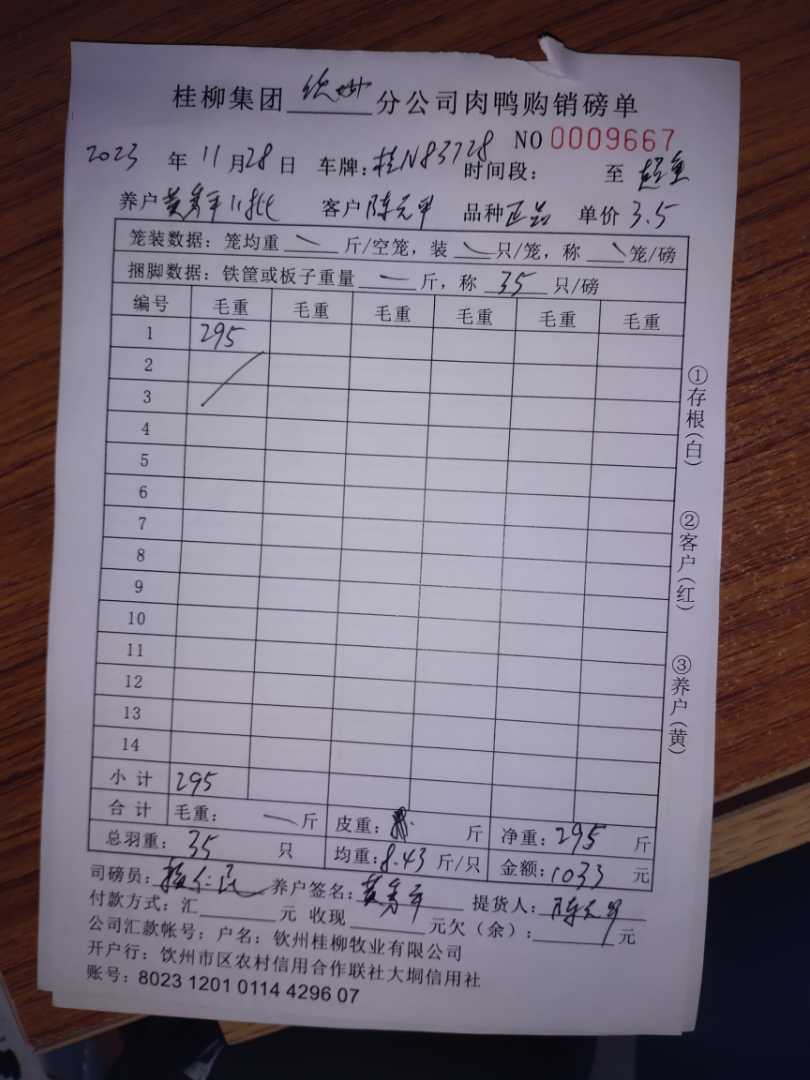 桂柳集团 钦州 分公司肉鸭购销磅单
NO 0009667
2023 年 11 月 28 日 车牌：桂N83728 时间段： 至 超重
养户 黄秀平11批 客户 陈元甲 品种 正品 单价 3.5
笼装数据：笼均重 斤/空笼，装 只/笼，称 笼/磅
捆脚数据：铁筐或板子重量 斤，称 35 只/磅
编号 毛重 毛重 毛重 毛重 毛重 毛重
1 295
2
3
4
5
6
7
8
9
10
11
12
13
14
小计 295
合计 毛重： 斤 皮重： 斤 净重：295 斤
总羽重：35 只 均重：8.43 斤/只 金额：1033 元
司磅员： 养户签名：黄秀平 提货人：
付款方式：汇 元 收现 元欠（余）： 元
公司汇款帐号：户名：钦州桂柳牧业有限公司
开户行：饮州市区农村信用合作联社大垌信用社
账号：8023 1201 0114 4296 07
①存根（白）
②客户（红）
③养户（黄）